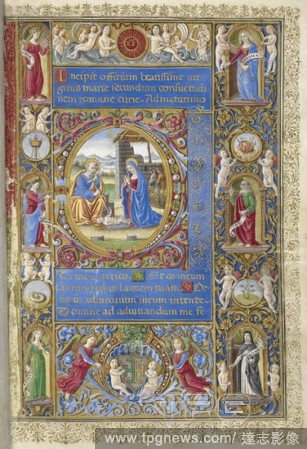 Incipit offitium beatissime vir-
ginis marie secundum consuetudi
nem romane curie. Ad matutinu
Et os meum
laudem tuam. De
us in adiutorium meum intende
Domine ad adiuvandum me fe
www.tpgnews.com/ 達志影像